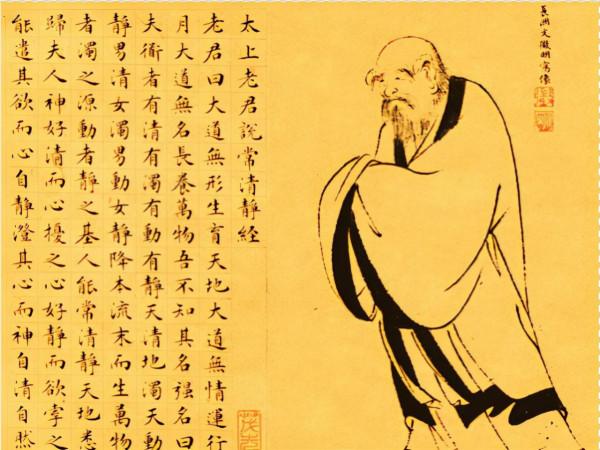 長洲文徵明寫像
太上老君說常清靜經
老君曰大道無形生育天地大道無情運行
月大道無名長養萬物吾不知其名强名曰
夫衜者有清有濁有動有靜天清地濁天動
靜男清女濁男動女靜降本流末而生萬物
者濁之源動者靜之基人能常清靜天地悉
歸夫人神好清而心擾之心好靜而欲牽之
能遣其欲而心自靜澄其心而神自清自然